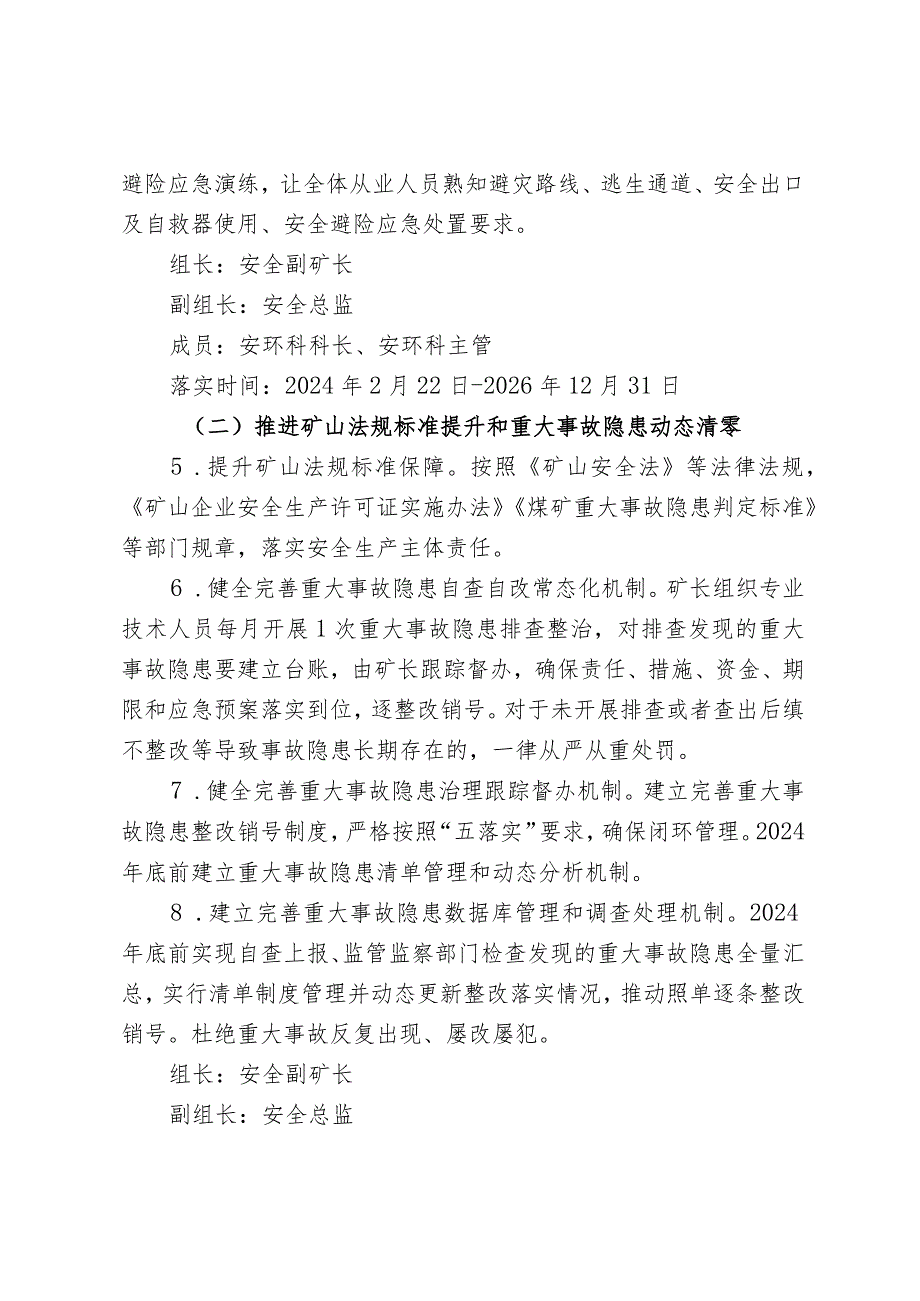 避险应急演练，让全体从业人员熟知避灾路线、逃生通道、安全出口
及自救器使用、安全避险应急处置要求。
组长：安全副矿长
副组长：安全总监
成员：安环科科长、安环科主管
落实时间：2024 年 2 月 22 日-2026 年 12 月 31 日
（二）推进矿山法规标准提升和重大事故隐患动态清零
5 .提升矿山法规标准保障。按照《矿山安全法》等法律法规，
《矿山企业安全生产许可证实施办法》《煤矿重大事故隐患判定标准》
等部门规章，落实安全生产主体责任。
6 .健全完善重大事故隐患自查自改常态化机制。矿长组织专业
技术人员每月开展 1 次重大事故隐患排查整治，对排查发现的重大
事故隐患要建立台账，由矿长跟踪督办，确保责任、措施、资金、期
限和应急预案落实到位，逐整改销号。对于未开展排查或者查出后缜
不整改等导致事故隐患长期存在的，一律从严从重处罚。
7 .健全完善重大事故隐患治理跟踪督办机制。建立完善重大事
故隐患整改销号制度，严格按照“五落实”要求，确保闭环管理。2024
年底前建立重大事故隐患清单管理和动态分析机制。
8 .建立完善重大事故隐患数据库管理和调查处理机制。2024
年底前实现自查上报、监管监察部门检查发现的重大事故隐患全量汇
总，实行清单制度管理并动态更新整改落实情况，推动照单逐条整改
销号。杜绝重大事故反复出现、屡改屡犯。
组长：安全副矿长
副组长：安全总监